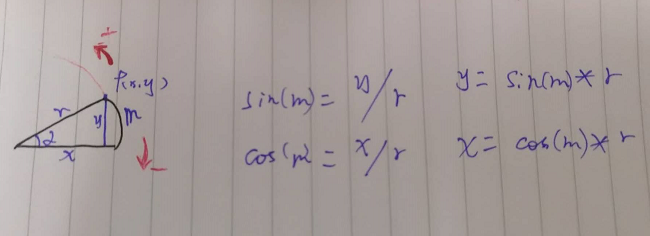 +
P(x,y)
r
y
m
2
x
-
sin(m) = y/r
y = sin(m)* r
cos(m) = x/r
x = cos(m)* r